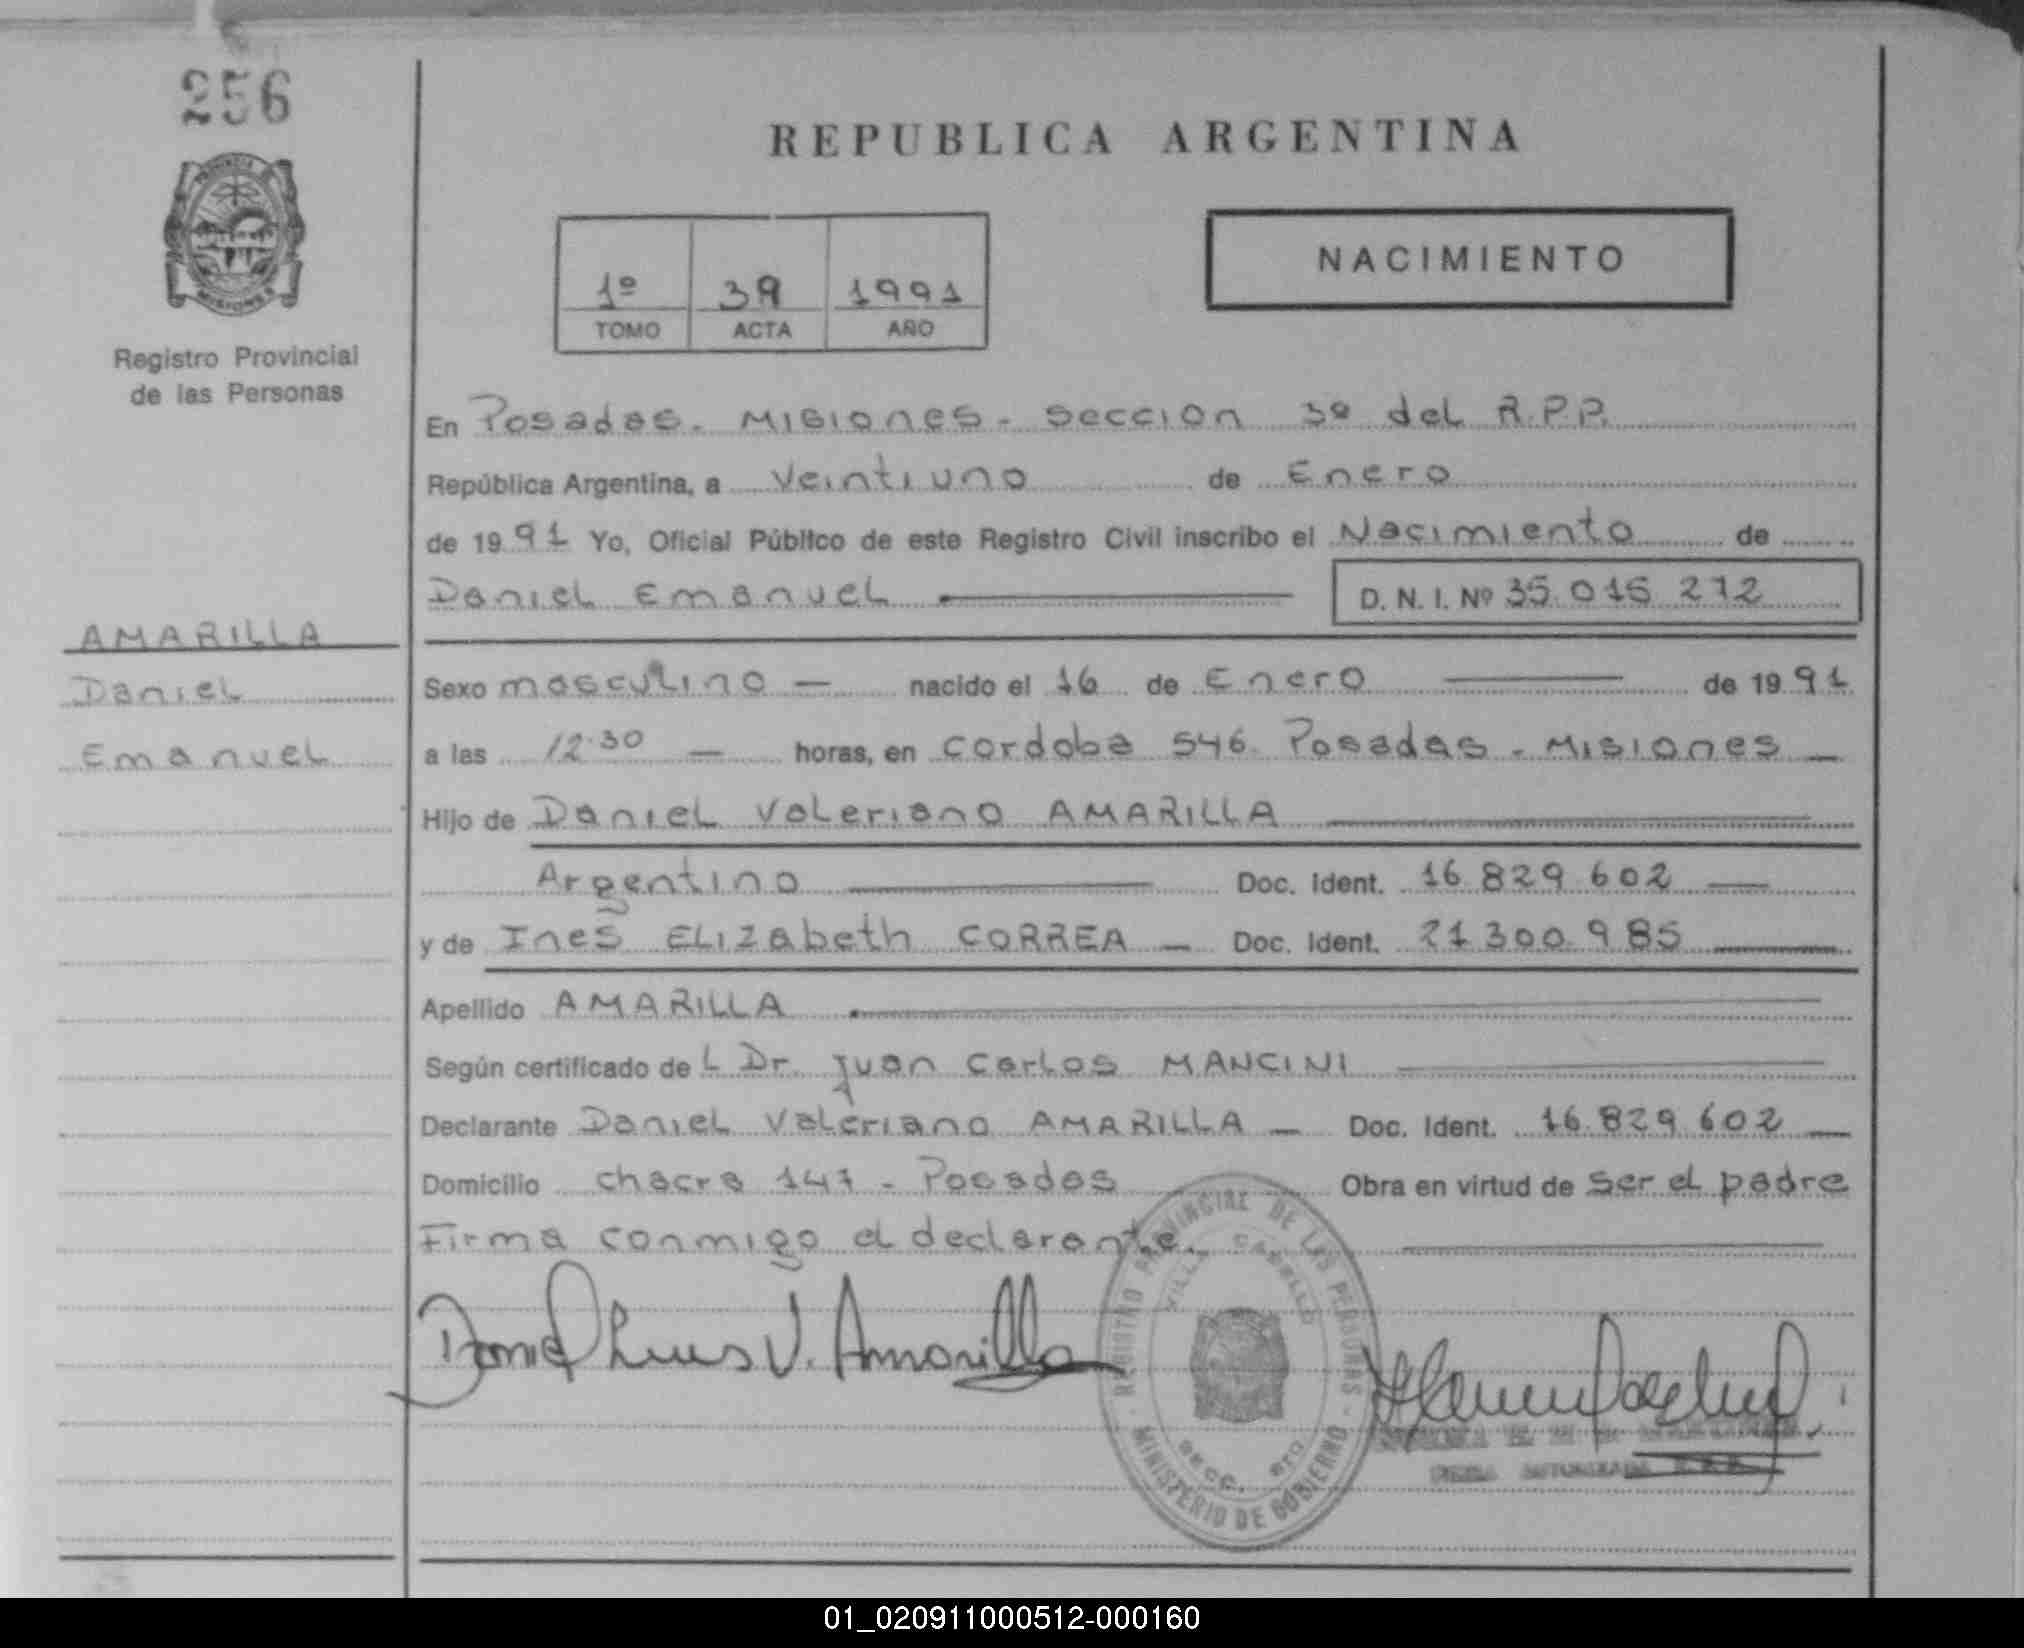 256
REPUBLICA ARGENTINA
PROVINCIA
MISIONES
Registro Provincial
de las Personas
1º 39 1991
TOMO ACTA AÑO
NACIMIENTO
En Posadas. Misiones. Seccion 3º del R.P.P.
República Argentina, a Veintiuno de Enero
de 1991 Yo, Oficial Público de este Registro Civil inscribo el Nacimiento de
Daniel Emanuel D. N. I. Nº 35.015.272
AMARILLA
Daniel
Emanuel
Sexo masculino — nacido el 16 de Enero de 1991
a las 12.30 — horas, en cordoba 546. Posadas - Misiones —
Hijo de Daniel Valeriano AMARILLA
Argentino Doc. Ident. 16.829.602 —
y de Ines Elizabeth CORREA — Doc. Ident. 21.300.985
Apellido AMARILLA
Según certificado de L Dr. Juan Carlos MANCINI
Declarante Daniel Valeriano AMARILLA — Doc. Ident. 16.829.602 —
Domicilio chacra 147 - Posadas Obra en virtud de ser el padre
Firma conmigo el declarante.
Daniel Luis V. Amarilla
REGISTRO PROVINCIAL DE LAS PERSONAS
VILLA CABELLO
SECC. 3ro
MINISTERIO DE GOBIERNO
01_020911000512-000160